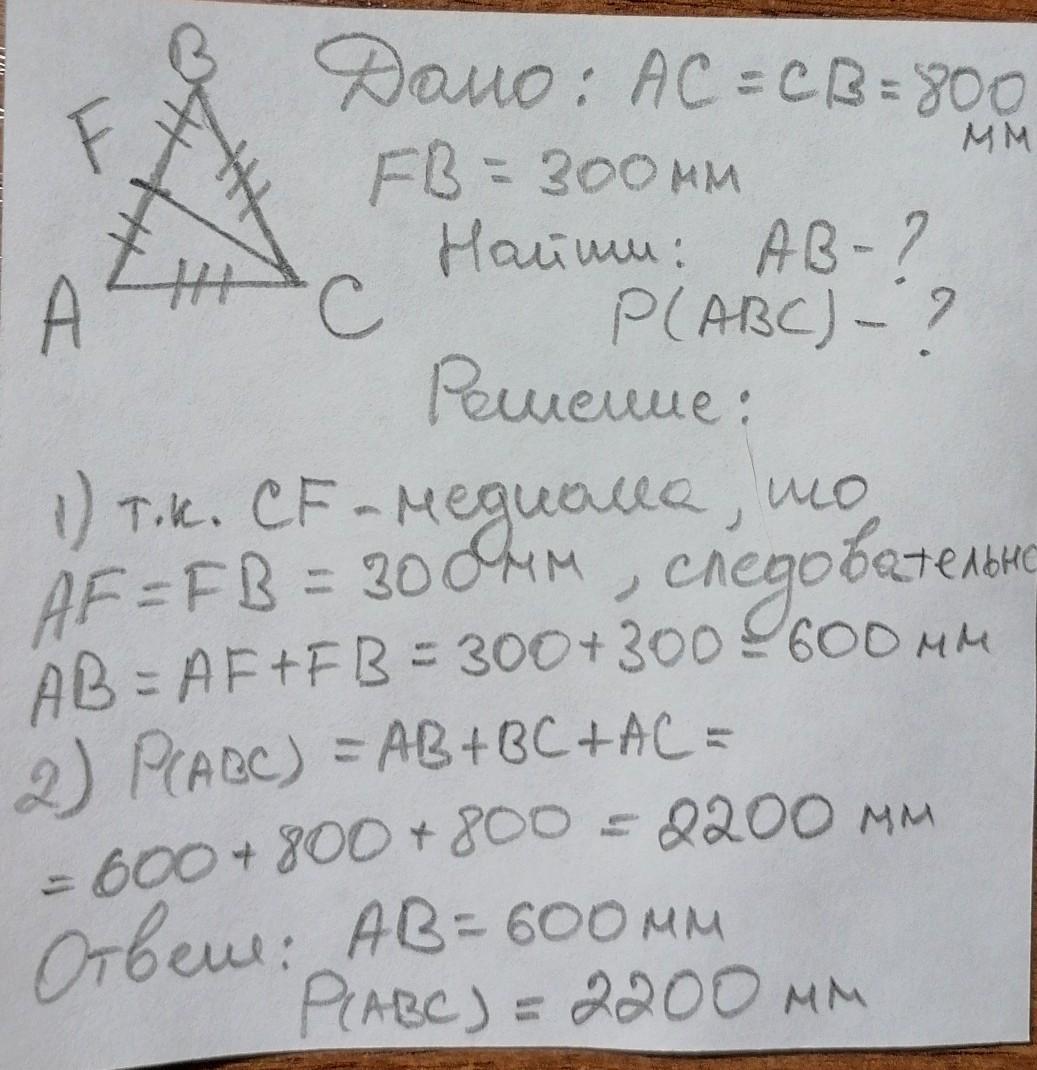 B
F
A
C
Дано: AC = CB = 800
мм
FB = 300 мм
Найти: AB - ?
P(ABC) - ?
Решение:
1) т.к. CF - медиана, то
AF = FB = 300 мм, следовательно
AB = AF + FB = 300 + 300 = 600 мм
2) P(ABC) = AB + BC + AC =
= 600 + 800 + 800 = 2200 мм
Ответ: AB = 600 мм
P(ABC) = 2200 мм